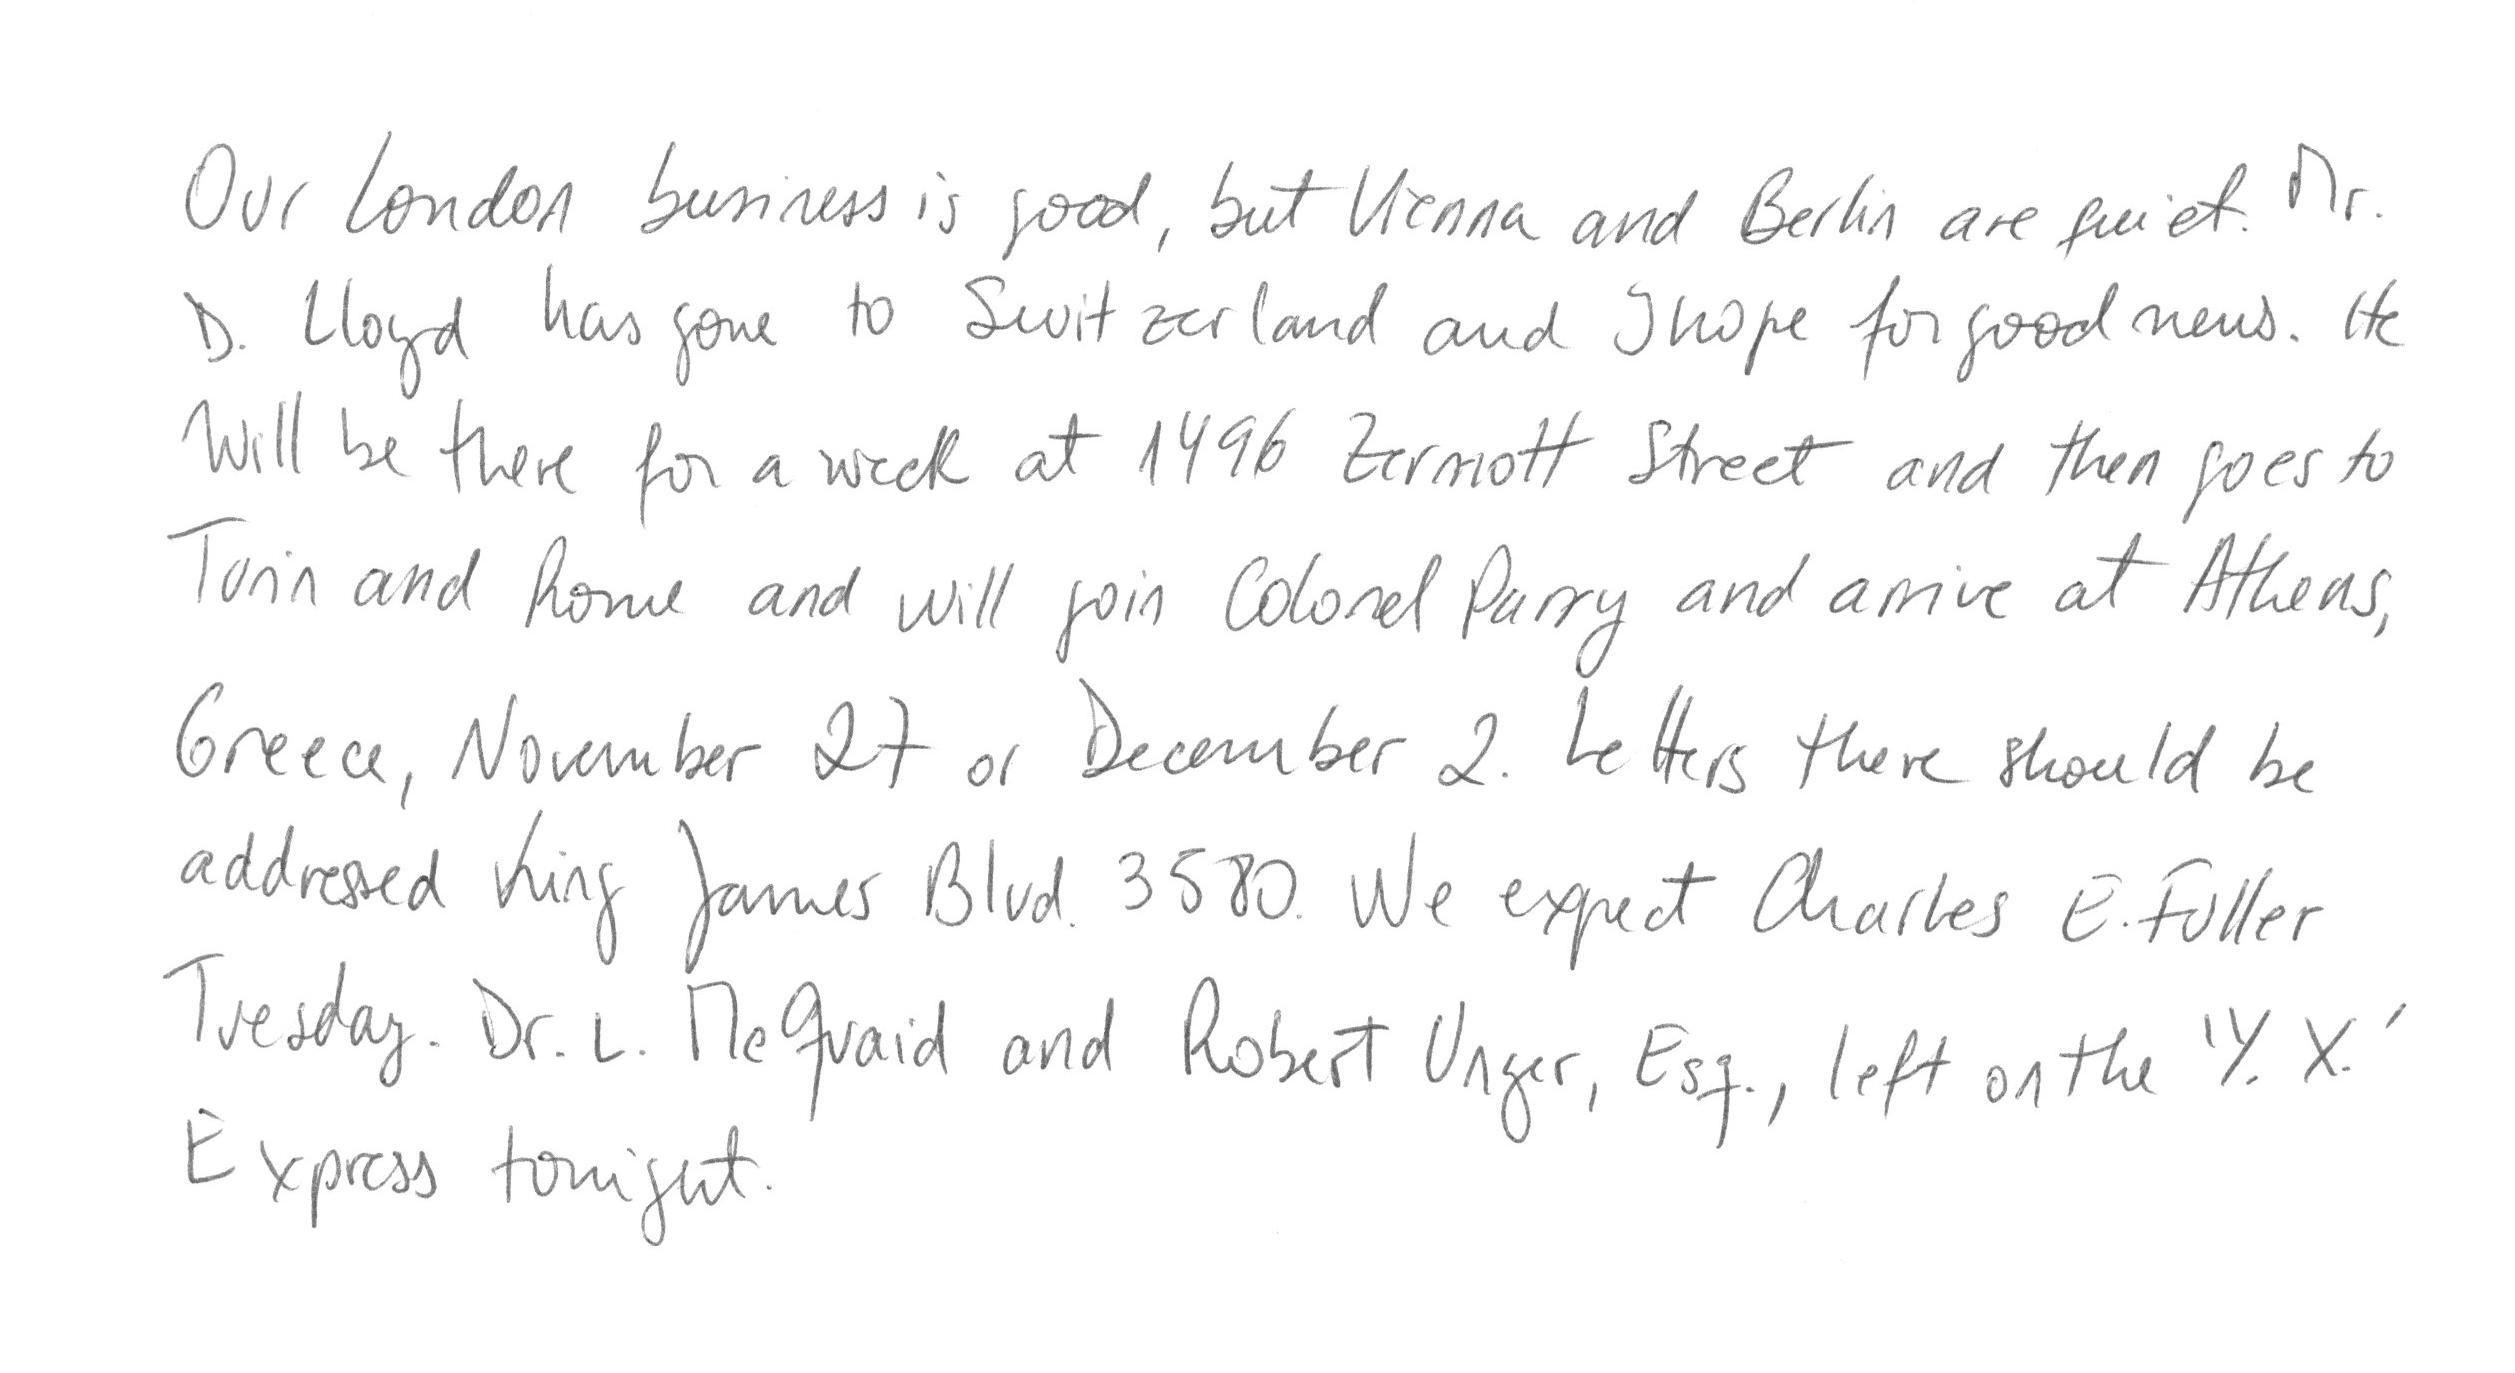 Our London business is good, but Vienna and Berlin are quiet. Mr.
D. Lloyd has gone to Switzerland and I hope for good news. He
will be there for a week at 1496 Zermott Street and then goes to
Turin and Rome and will join Colonel Parry and arrive at Athens,
Greece, November 27 or December 2. Letters there should be
addressed King James Blvd. 3580. We expect Charles E. Fuller
Tuesday. Dr. L. McQuaid and Robert Unger, Esq., left on the 'Y. X.'
Express tonight.